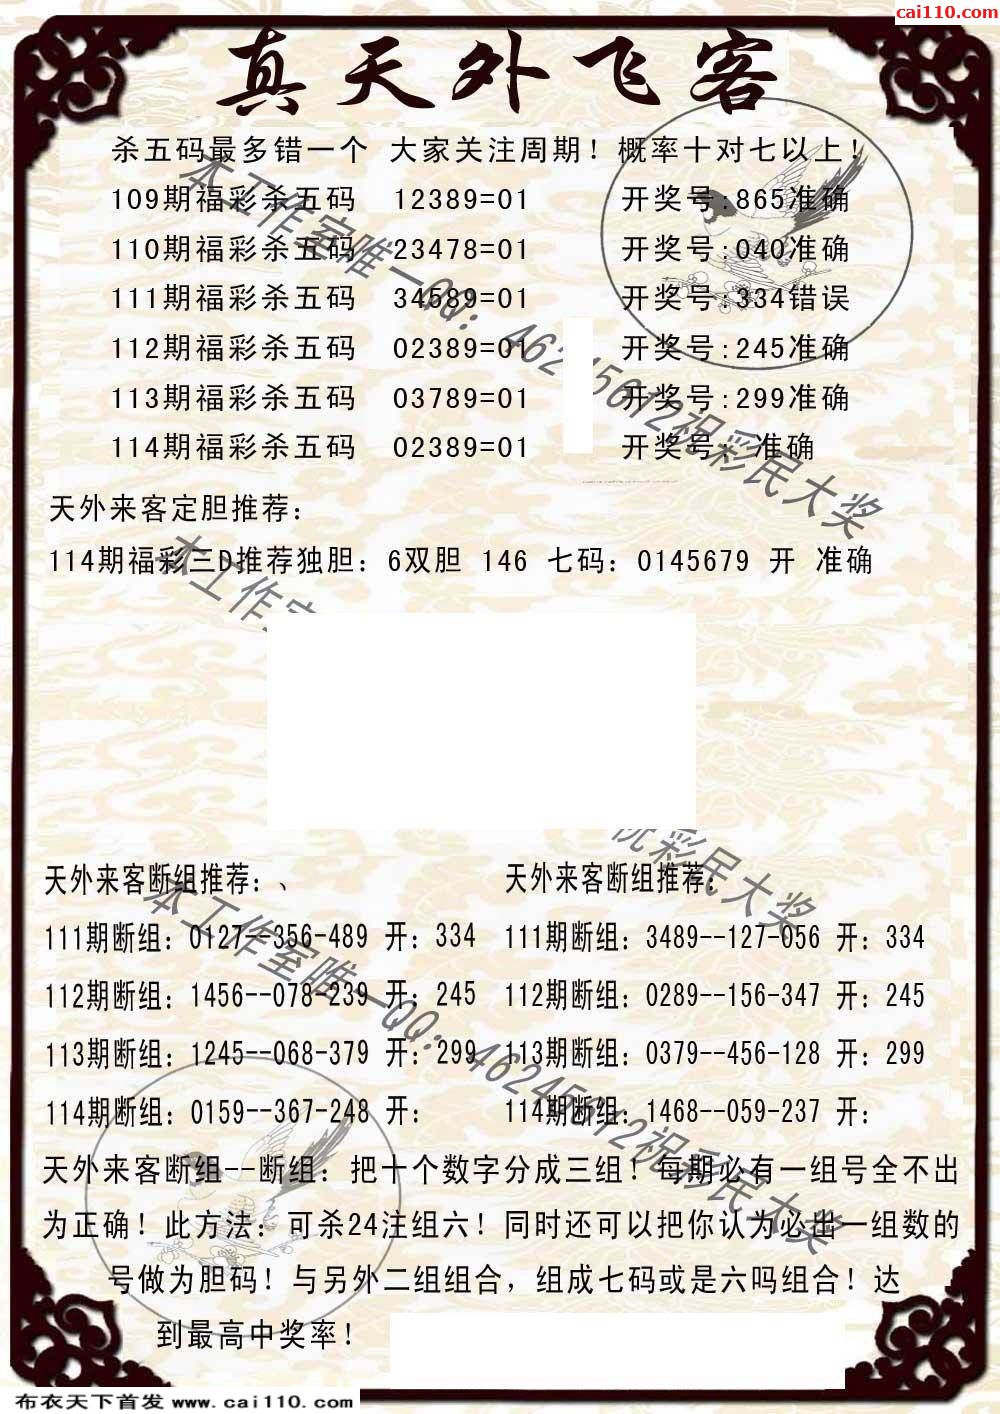 cai110.com
真天外飞客
杀五码最多错一个 大家关注周期！概率十对七以上！
109期福彩杀五码 12389=01 开奖号:865准确
110期福彩杀五码 23478=01 开奖号:040准确
111期福彩杀五码 34589=01 开奖号:334错误
112期福彩杀五码 02389=01 开奖号:245准确
113期福彩杀五码 03789=01 开奖号:299准确
114期福彩杀五码 02389=01 开奖号: 准确
本工作室唯一QQ：46245612祝彩民大奖
天外来客定胆推荐：
114期福彩三D推荐独胆：6双胆 146 七码：0145679 开 准确
本工作室
祝彩民大奖
天外来客断组推荐：、
111期断组：0127--356-489 开：334
112期断组：1456--078-239 开：245
113期断组：1245--068-379 开：299
114期断组：0159--367-248 开：
天外来客断组推荐：
111期断组：3489--127-056 开：334
112期断组：0289--156-347 开：245
113期断组：0379--456-128 开：299
114期断组：1468--059-237 开：
本工作室唯一QQ：46245612祝彩民大奖
天外来客断组--断组：把十个数字分成三组！每期必有一组号全不出
为正确！此方法：可杀24注组六！同时还可以把你认为必出一组数的
号做为胆码！与另外二组组合，组成七码或是六吗组合！达
到最高中奖率！
布衣天下首发 www.cai110.com